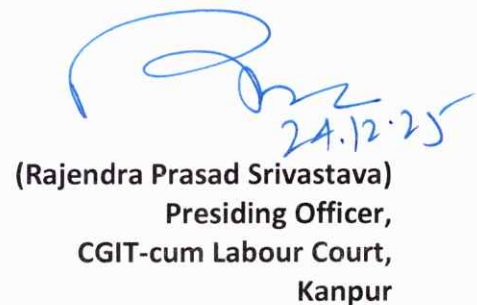 24.12.25
(Rajendra Prasad Srivastava)
Presiding Officer,
CGIT-cum Labour Court,
Kanpur